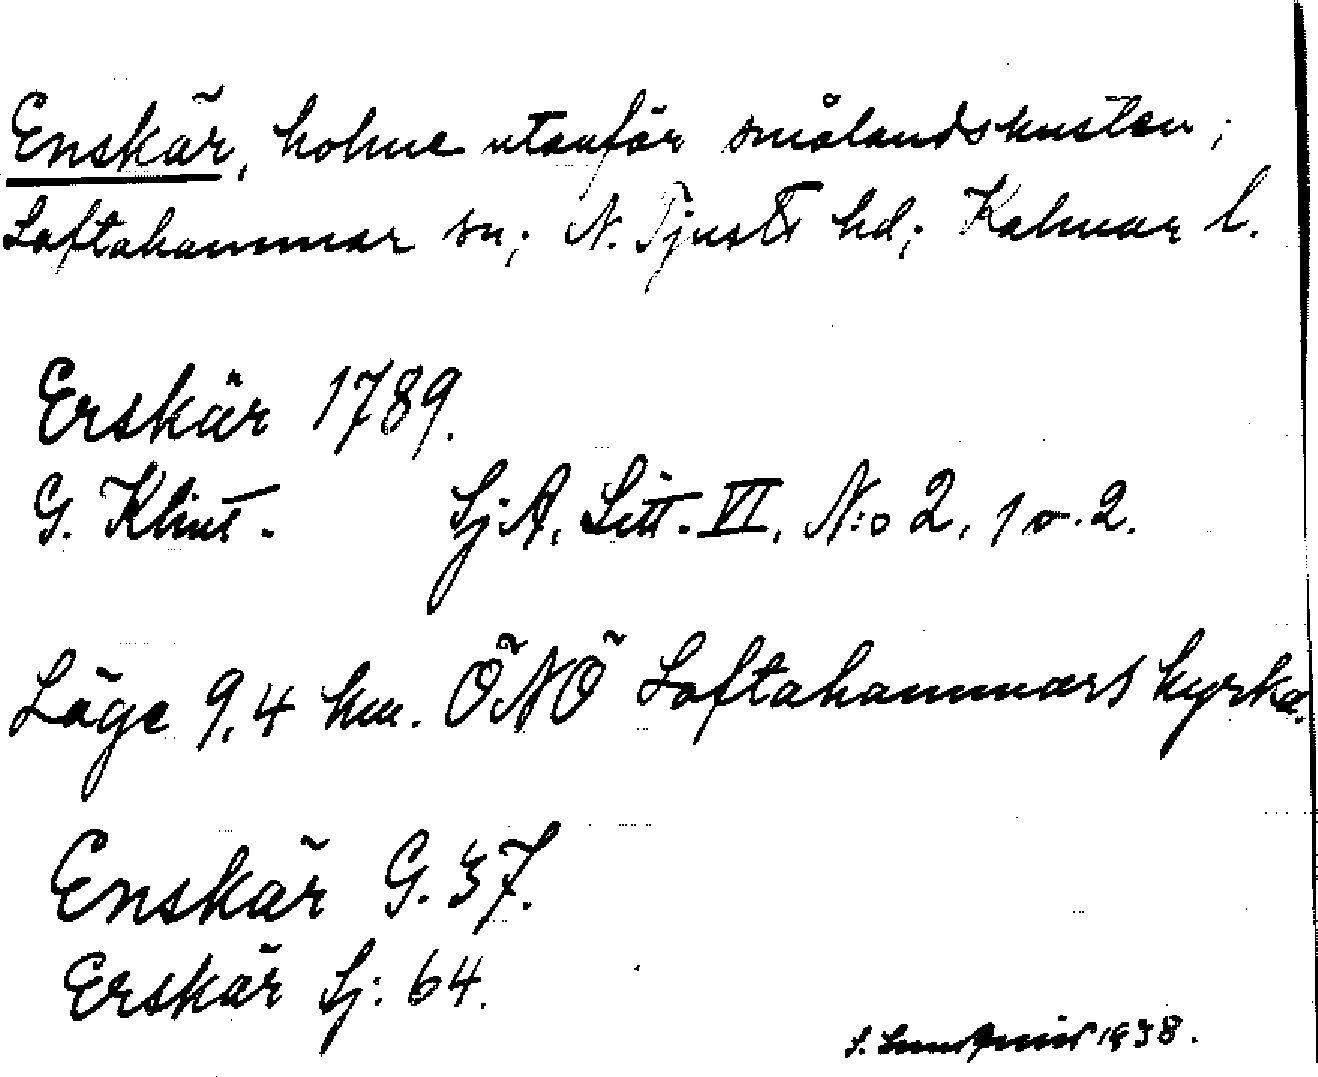 Enskär, holme utanför smålandskusten;
Loftahammar sn; N. Tjusts hd; Kalmar l.
Erskär 1789.
G. Klint. SjA, Litt. VI, N:o 2, 1 o. 2.
Läge 9,4 km. ÖNÖ Loftahammars kyrka.
Enskär G. 37.
Erskär Sj: 64.
1938.